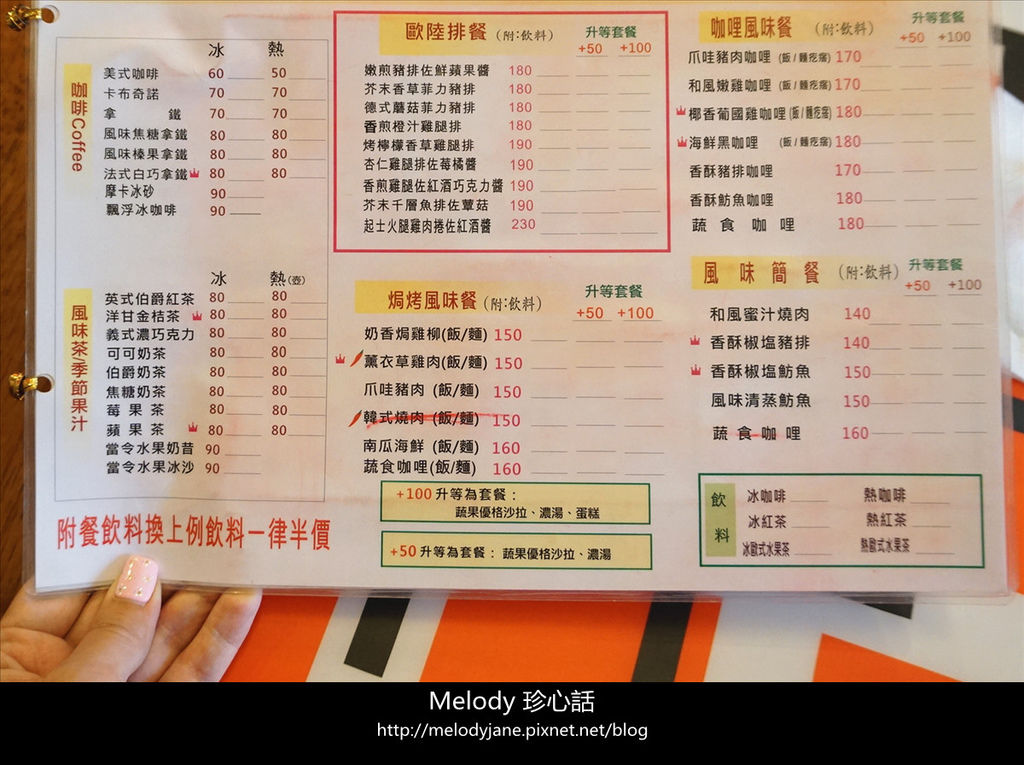 咖啡Coffee
冰 熱
美式咖啡 60 50
卡布奇諾 70 70
拿 鐵 70 70
風味焦糖拿鐵 80 80
風味榛果拿鐵 80 80
法式白巧拿鐵 80 80
摩卡冰砂 90
飄浮冰咖啡 90
風味茶/季節果汁
冰 熱(壺)
英式伯爵紅茶 80 80
洋甘金桔茶 80 80
義式濃巧克力 80 80
可可奶茶 80 80
伯爵奶茶 80 80
焦糖奶茶 80 80
莓 果 茶 80 80
蘋 果 茶 80 80
當令水果奶昔 90
當令水果冰沙 90
附餐飲料換上例飲料一律半價
歐陸排餐 (附:飲料) 升等套餐
+50 +100
嫩煎豬排佐鮮蘋果醬 180
芥末香草菲力豬排 180
德式蘑菇菲力豬排 180
香煎橙汁雞腿排 180
烤檸檬香草雞腿排 190
杏仁雞腿排佐莓橘醬 190
香煎雞腿佐紅酒巧克力醬 190
芥末千層魚排佐蕈菇 190
起士火腿雞肉捲佐紅酒醬 230
焗烤風味餐 (附:飲料) 升等套餐
+50 +100
奶香焗雞柳(飯/麵) 150
薰衣草雞肉(飯/麵) 150
爪哇豬肉 (飯/麵) 150
韓式燒肉 (飯/麵) 150
南瓜海鮮 (飯/麵) 160
蔬食咖哩(飯/麵) 160
+100 升等為套餐：
蔬果優格沙拉、濃湯、蛋糕
+50 升等為套餐： 蔬果優格沙拉、濃湯
咖哩風味餐 (附:飲料) 升等套餐
+50 +100
爪哇豬肉咖哩 (飯/麵疙瘩) 170
和風嫩雞咖哩 (飯/麵疙瘩) 170
椰香葡國雞咖哩(飯/麵疙瘩) 180
海鮮黑咖哩 (飯/麵疙瘩) 180
香酥豬排咖哩 170
香酥魴魚咖哩 180
蔬 食 咖 哩 180
風 味 簡 餐 (附:飲料) 升等套餐
+50 +100
和風蜜汁燒肉 140
香酥椒塩豬排 140
香酥椒塩魴魚 150
風味清蒸魴魚 150
蔬 食 咖 哩 160
飲料
冰咖啡 熱咖啡
冰紅茶 熱紅茶
冰歐式水果茶 熱歐式水果茶
Melody 珍心話
http://melodyjane.pixnet.net/blog